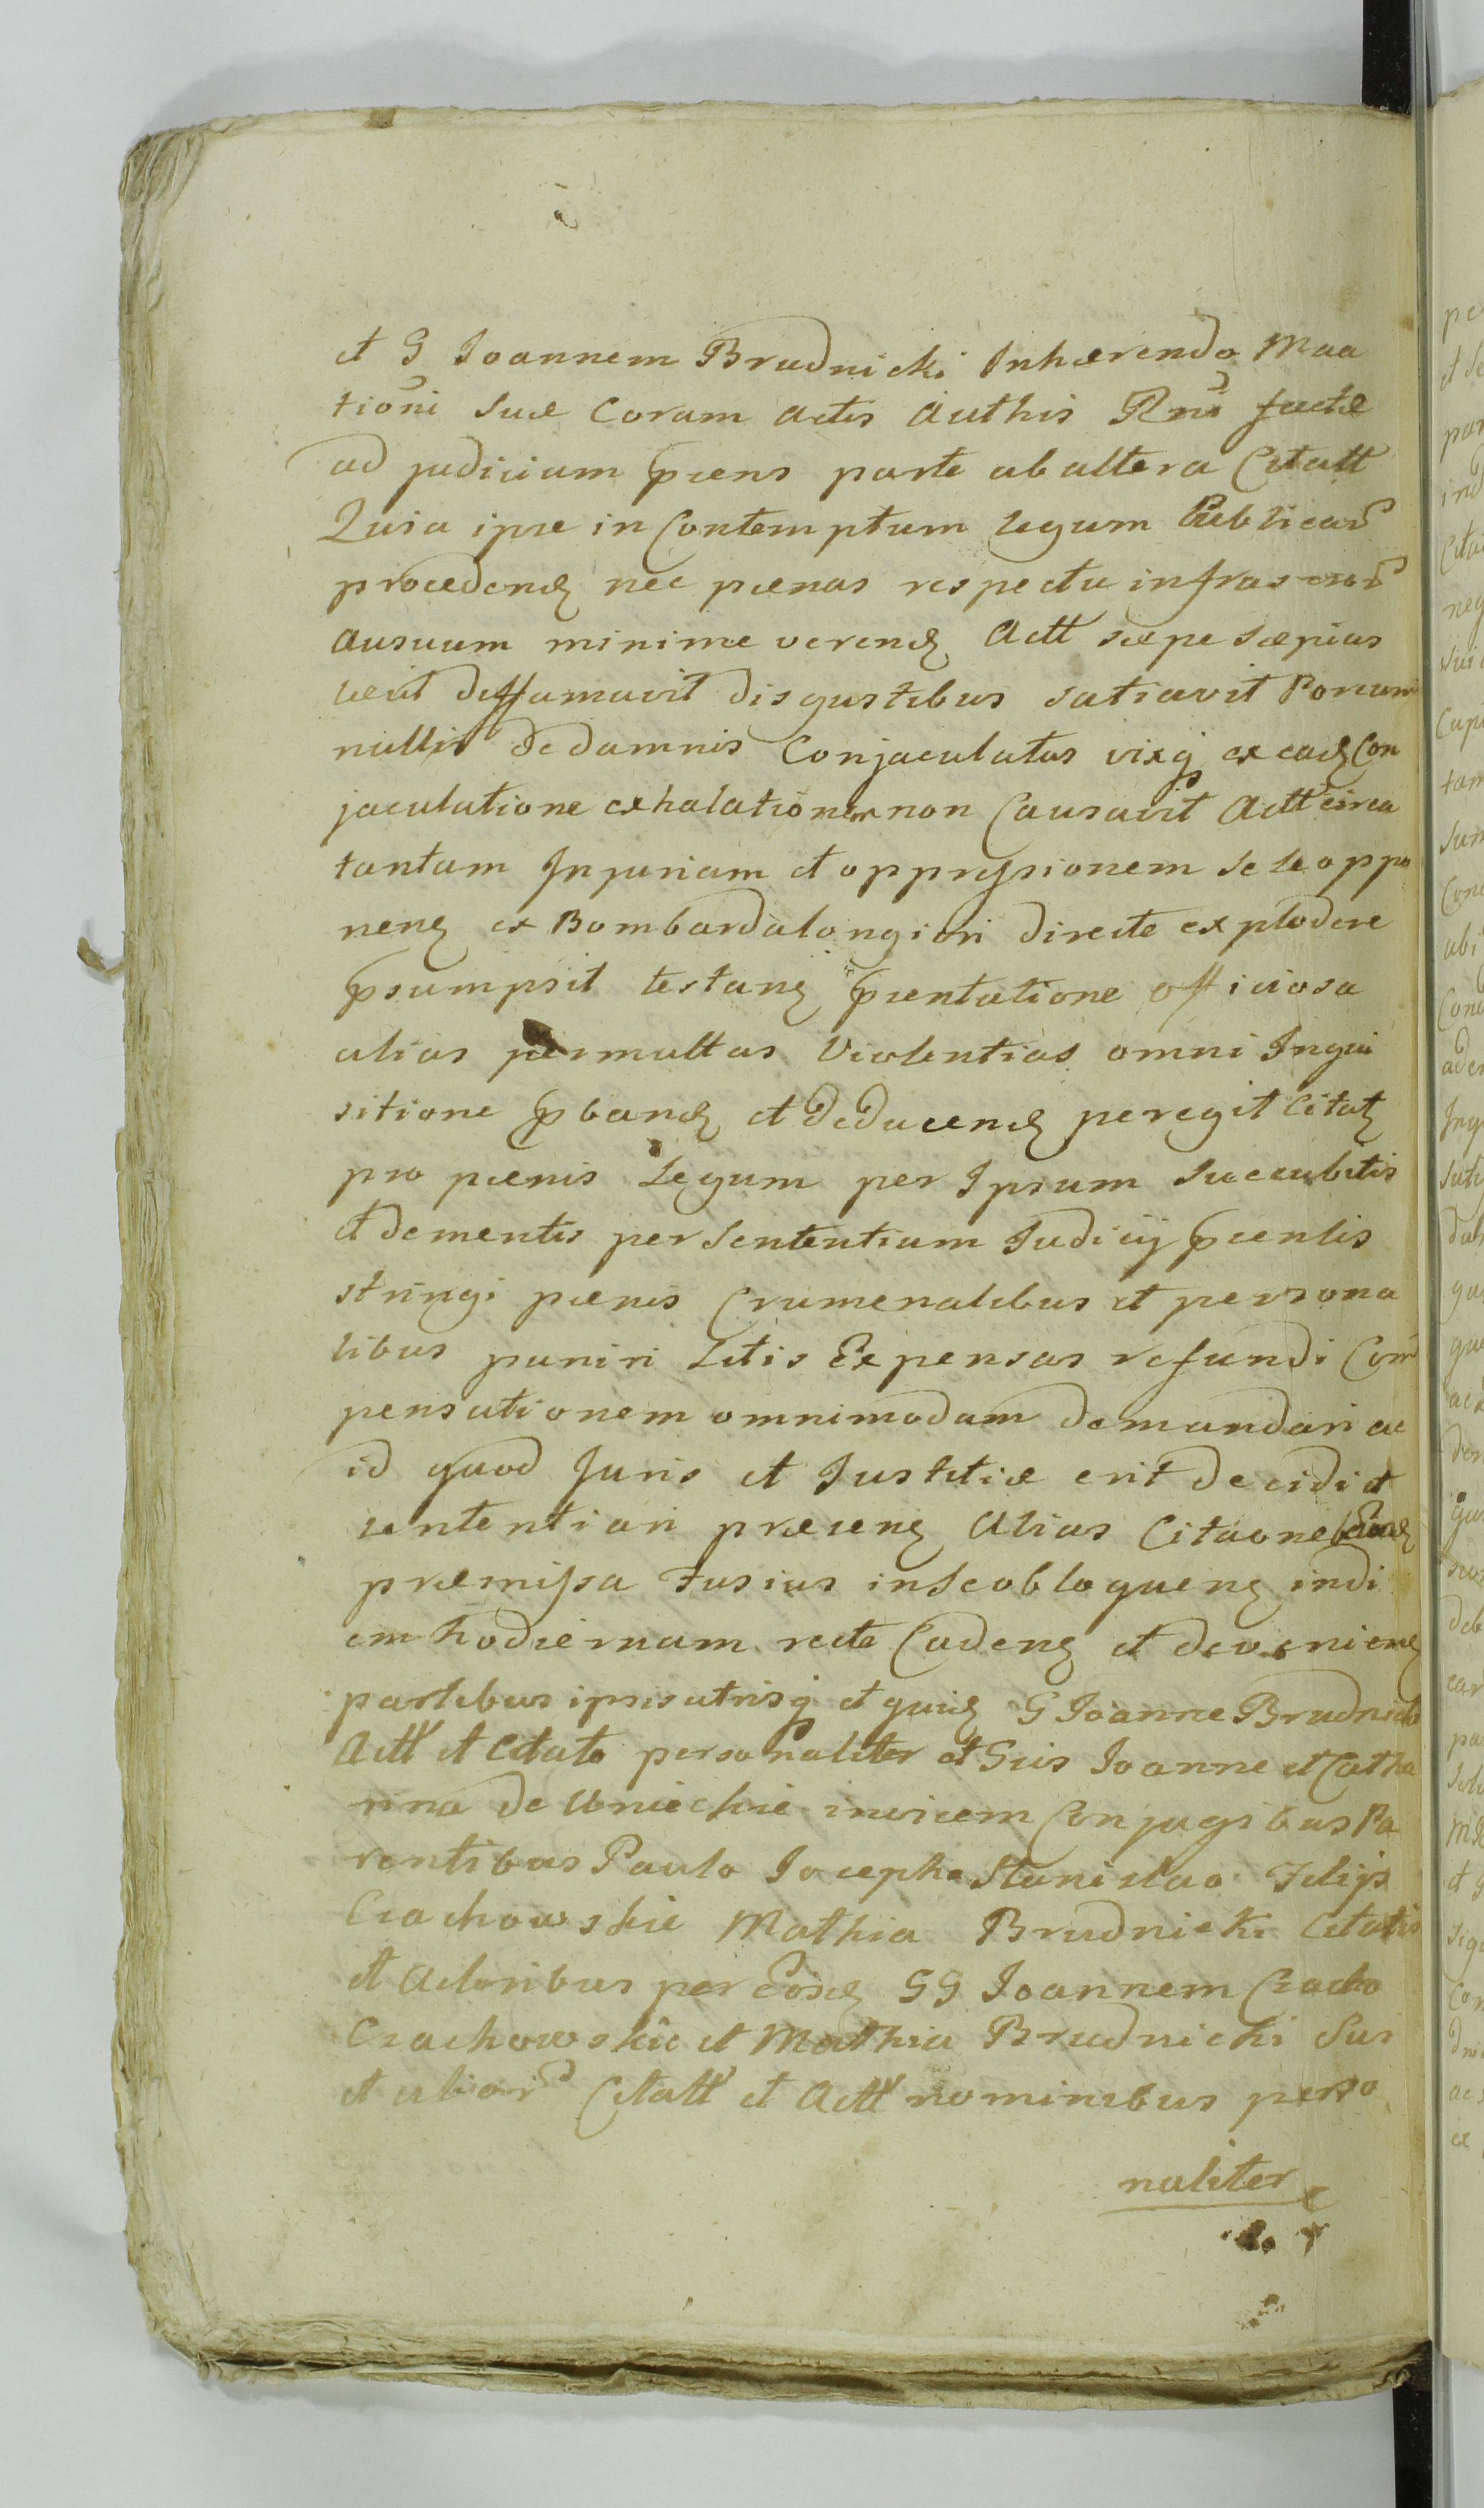 et G Joannem Brudnicki Inhærendo Maa
tioni Suæ Coram Actis Authis Rnis factæ
ad judicium pñens parte ab altera Citatt
Quia ipse in Contemptum Legum Publicar
procedend nec pœnas respectu infrascrir
Ausuum minime verend Actt sæpe sæpius
deffamavit disgustibus satiavit Porcum
nullis de damnis Conjaculatus vixq ex ead Con
jaculatione exhalationem non Causavit Actt circa
tantam Injuriam et oppressionem sese oppo
nens ex Bombarda longiori directe explodere
psumpsit testans pñentatione officiosa
alias permultas Violentias omni Inqui
sitione pband et deducend peregit Citat
pro pœnis Legum per Ipsum Succubitis
et dementis per Sententiam Judicij pñentis
stringi pœnis Crumenalibus et persona
libus puniri Litis Expensas refundi Com
pensationem omnimodam demandari ac
id quod Juris et Justitiæ erit decidi et
sententiari præsens Alias Citaone
præmissa fusius in se obloquens in di
em hodiernam recte Cadens et deveniens
partibus ipsis utrisq et quid G Joanne Brudnicki
Actt et Citato personaliter et Gsis Joanne et Catha
rina de Uniechie invicem Conjugibus Pa
rentibus Paulo Josepho Stanislao Filijs
Czachowskie Mathia Brudnicki Citatis
et Actoribus per Eosd GG Joannem Czacho
Czachowskie et Mathia Brudnicki Sui
et alior Citatt et Actt nominibus perso
naliter